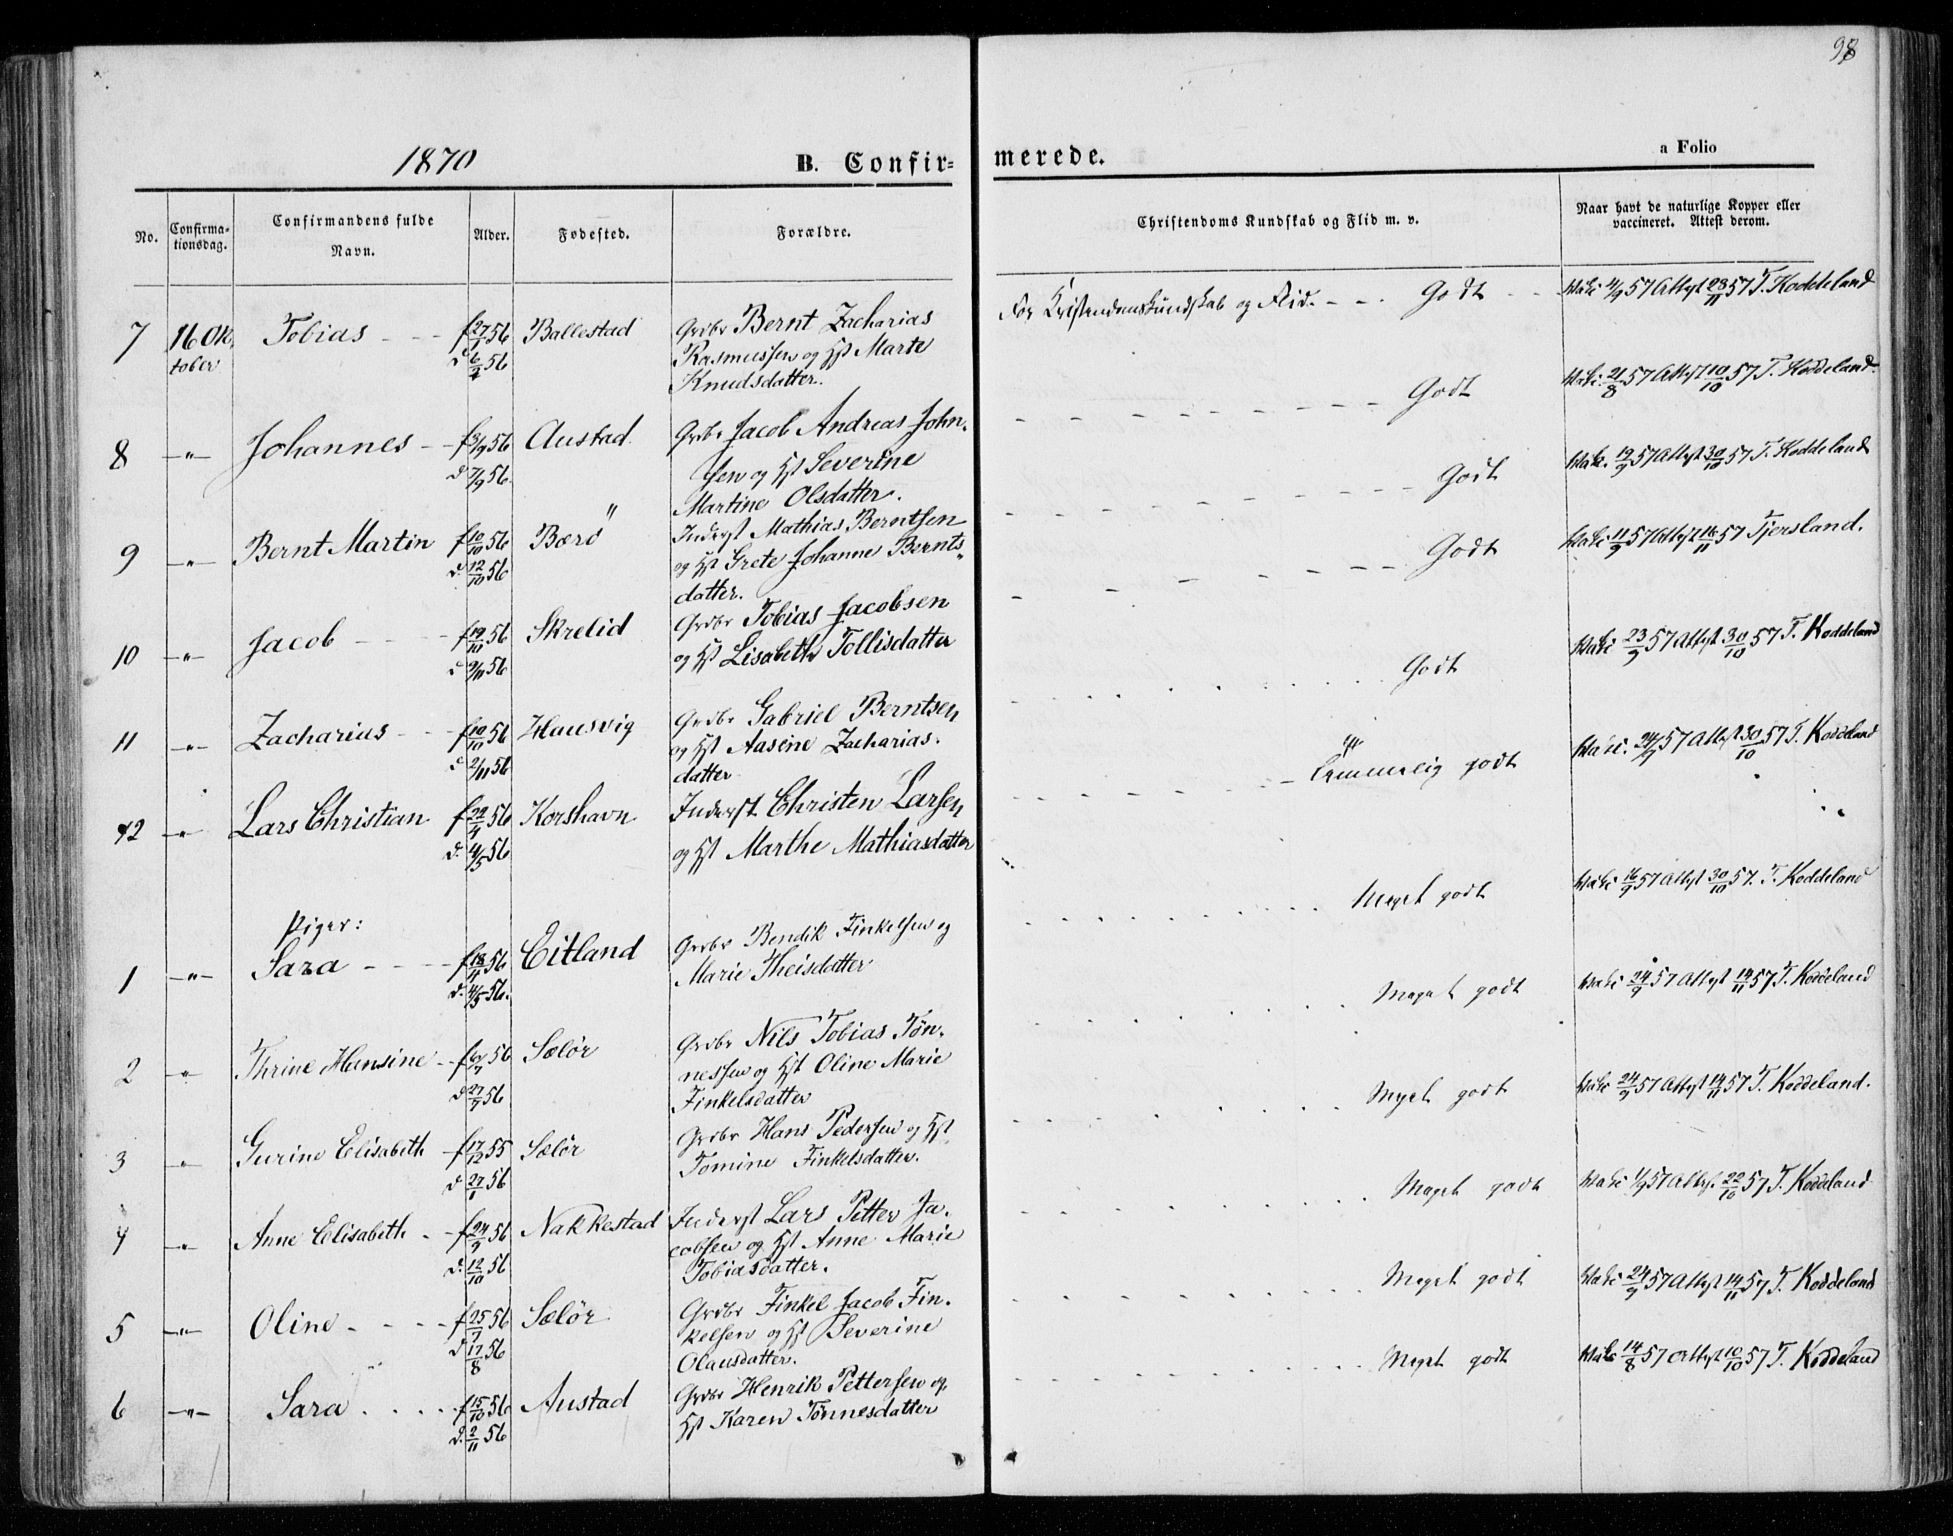 98
1870
B. Confir= merede.
a Folio
No.
Confirma-
tionsdag.
Confirmandens fulde
Navn.
Alder.
Fødested.
Forældre.
Christendoms Kundskab og Flid m. v.
Naar havt de naturlige Kopper eller
vaccineret. Attest derom.
7 16 Ok, Tobias - - - f 27/1 56 Ballestad Grdbr Bernt Zacharias
tober d 6/4 56 Rasmussen og Hst Marte
Knudsdatter.
For Kristendomskundskab og Flid. - - . Godt - - 57 Attest 23/11 57 T. Koddeland
8 -"- Johannes - - f 3/9 56 Austad Grdbr Jacob Andreas John-
d 7/9 56. sen og Hst Severine
Martine Olsdatter.
Godt 21/8 57 Attest 10/10 57 T. Koddeland
9 -"- Bernt Martin f 10/10 56 Bærø Inderst Mathias Berntsen
d. 12/10 56 og Hst Grete Johanne Bernts-
datter.
Godt 19/9 57 Attest 30/10 57 T. Koddeland
10 -"- Jacob - - - - f 19/10 56 Skrelid Grdbr Tobias Jacobsen
d 9/11 56 og Hst Lisabeth Tollisdatter
Godt 11/9 57 Attest 16/11 57 Tjersland.
11 -"- Zacharias - - - f 10/10 56 Hausvig Grdbr Gabriel Berntsen
d 2/11 56 og Hst Aasine Zacharias-
datter
Godt 23/9 57 Attest 30/10 57 T. Koddeland
12 -"- Lars Christian f 22/4 56 Korshavn Inderst Christen Larsen
d. 4/5 56 og Hst Marthe Mathiasdatter
Temmelig godt 24/9 57 Attest 30/10 57 T. Koddeland
Piger:
1 -"- Sara - - - - f 18/4 56 Eitland Grdbr Bendik Finkelsen og
d. 4/5 56. Marie Theisdatter
Meget godt 16/9 57 Attest 30/10 57. T. Koddeland
2 -"- Thrine Hansine - f 6/7 56 Sælør Grdbr Nils Tobias Tøn-
d 27/7 56 nessen og Hst Oline Marie
Finkelsdatter
Meget godt 24/9 57 Attest 14/11 57 T. Koddeland
3 -"- Gurine Elisabeth - f 17/12 55 Sælør Grdbr Hans Pedersen og Hst
d. 27/1 56 Tomine Finkelsdatter.
Meget godt 24/9 57 Attest 14/11 57 T. Koddeland.
4 -"- Anne Elisabeth - f 24/9 56 Nakkestad Inderst Lars Petter Ja-
d. 12/10 56 cobsen og Hst Anne Marie
Tobiasdatter.
Meget godt 1/9 57 Attest 22/10 57 T. Koddeland
5 -"- Oline - - - - f 25/7 56 Sælør Grdbr Finkel Jacob Fin-
d 17/8 56 kelsen og Hst Severine
Olausdatter.
Meget godt 24/9 57 Attest 14/11 57 T. Koddeland
6 -"- Sara . . . . f 15/10 56 Austad Grdbr Henrik Pettersen og
d. 2/11 56 Hst Karen Tønnesdatter
Meget godt 14/8 57 Attest 10/10 57 T. Koddeland